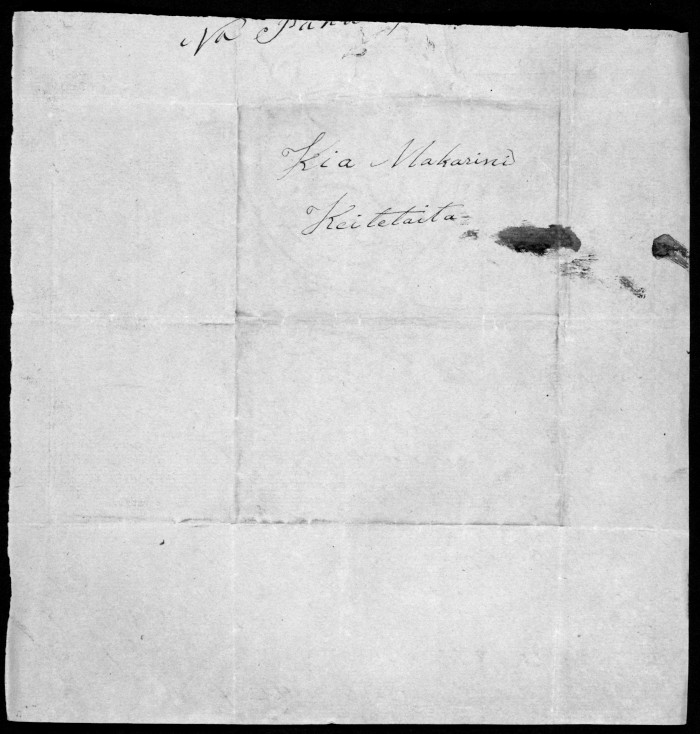 Na
Kia Makarini
Keitetaita-